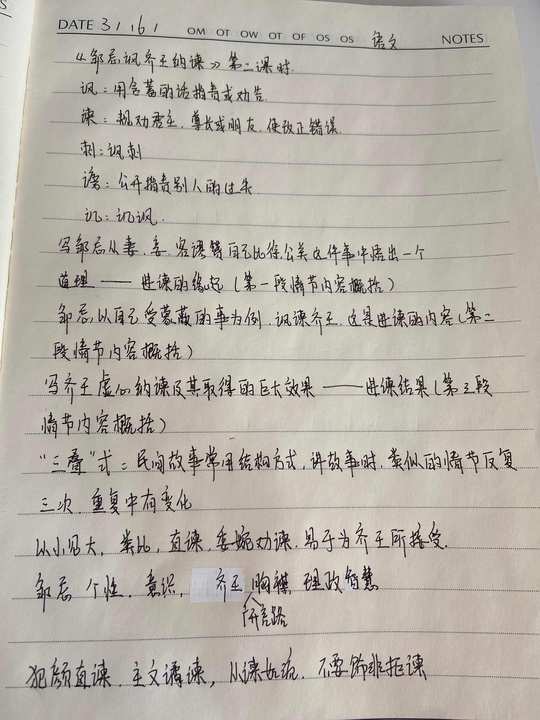 DATE 3 / 6 / OM OT OW OT OF OS OS 语文 NOTES
《邹忌讽齐王纳谏》第二课时
讽：用含蓄的话指责或劝告
谏：规劝君主、尊长或朋友，使改正错误
刺：讽刺
谤：公开指责别人的过失
讥：讥讽
写邹忌从妻、妾、客误赞自己比徐公美这件事中悟出一个
道理——进谏的缘起（第一段情节内容概括）
邹忌以自己受蒙蔽的事为例，讽谏齐王，这是进谏的内容（第二
段情节内容概括）
写齐王虚心纳谏及其取得的巨大效果——进谏结果（第三段
情节内容概括）
“三叠”式：民间故事常用结构方式，讲故事时，类似的情节反复
三次，重复中有变化
以小见大，类比，直谏，委婉劝谏，易于为齐王所接受.
邹忌 个性，意识， 齐王 胸襟 理政智慧
开言路
犯颜直谏，主文谲谏，从谏如流，不要饰非拒谏